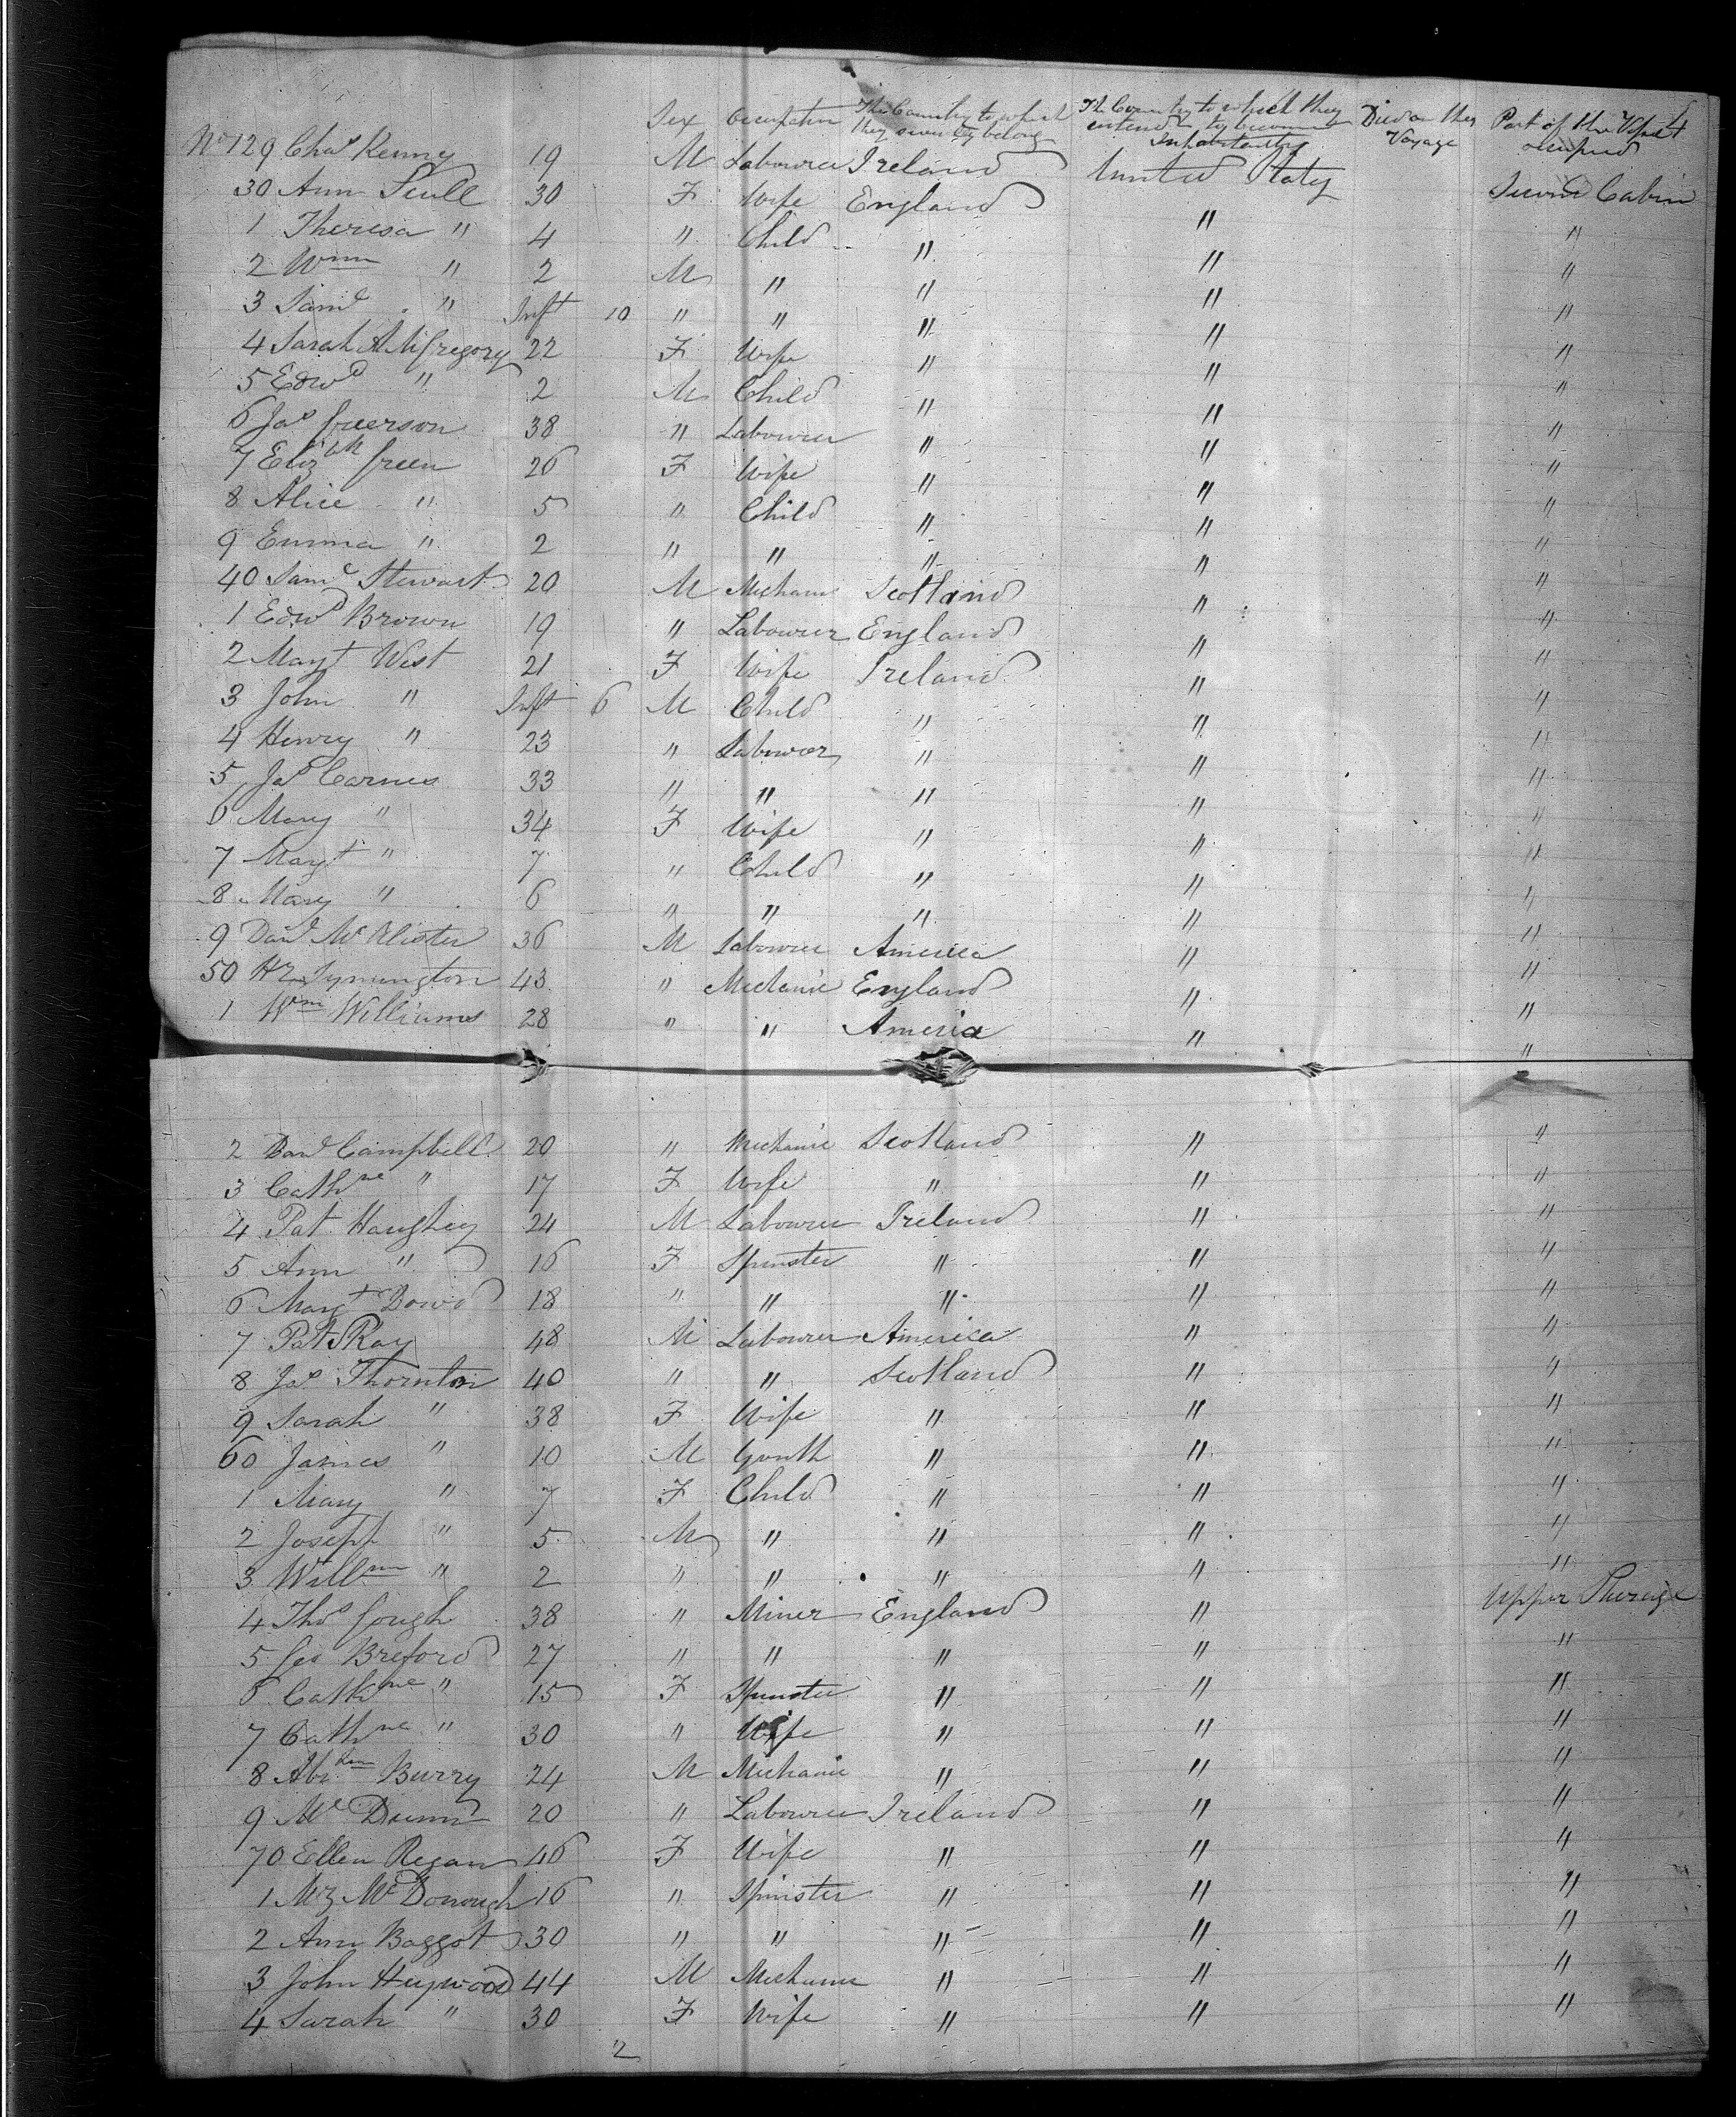 Sex Occupation The Country to which they severally belong The Country to which they intend to become Inhabitants Died on the Voyage Part of the Vessel occupied
No 129 Chas Kenny 19 M Labourer Ireland United States Second Cabin
30 Ann Scull 30 F Wife England " "
1 Theresa " 4 " Child " " "
2 Wm " 2 M " " " "
3 Saml " Inft 10 " " " " "
4 Sarah A McGregory 22 F Wife " " "
5 Edwd " 2 M Child " " "
6 Jas Greerson 38 " Labourer " " "
7 Elizbth Green 26 F Wife " " "
8 Alice " 5 " Child " " "
9 Emma " 2 " " " " "
40 Saml Stewart 20 M Mechanic Scotland " "
1 Edwd Brown 19 " Labourer England " "
2 Margt West 21 F Wife Ireland " "
3 John " Inft 6 M Child " " "
4 Henry " 23 " Labourer " " "
5 Jas Carnes 33 " " " " "
6 Mary " 34 F Wife " " "
7 Margt " 7 " Child " " "
8 Mary " 6 " " " " "
9 Danl McAlister 36 M Labourer America " "
50 Hy Symington 43 " Mechanic England " "
1 Wm Williams 28 " " America " "
2 Danl Campbell 20 " Mechanic Scotland " "
3 Cathne " 17 F Wife " " "
4 Pat Haughey 24 M Labourer Ireland " "
5 Ann " 16 F Spinster " " "
6 Margt Dowd 18 " " " " "
7 Pat Ray 48 M Labourer America " "
8 Jas Thornton 40 " " Scotland " "
9 Sarah " 38 F Wife " " "
60 James " 10 M Youth " " "
1 Mary " 7 F Child " " "
2 Joseph " 5 M " " " "
3 Willm " 2 " " " " "
4 Thos Gough 38 " Miner England " Upper Steerage
5 Geo Breford 27 " " " " "
6 Cathne " 15 F Spinster " " "
7 Cathne " 30 " Wife " " "
8 Abrhm Burry 24 M Mechanic " " "
9 Ml Dunn 20 " Labourer Ireland " "
70 Ellen Regan 46 F Wife " " "
1 My McDonough 16 " Spinster " " "
2 Ann Baggot 30 " " " " "
3 John Heywood 44 M Mechanic " " "
4 Sarah " 30 F Wife " " "
2